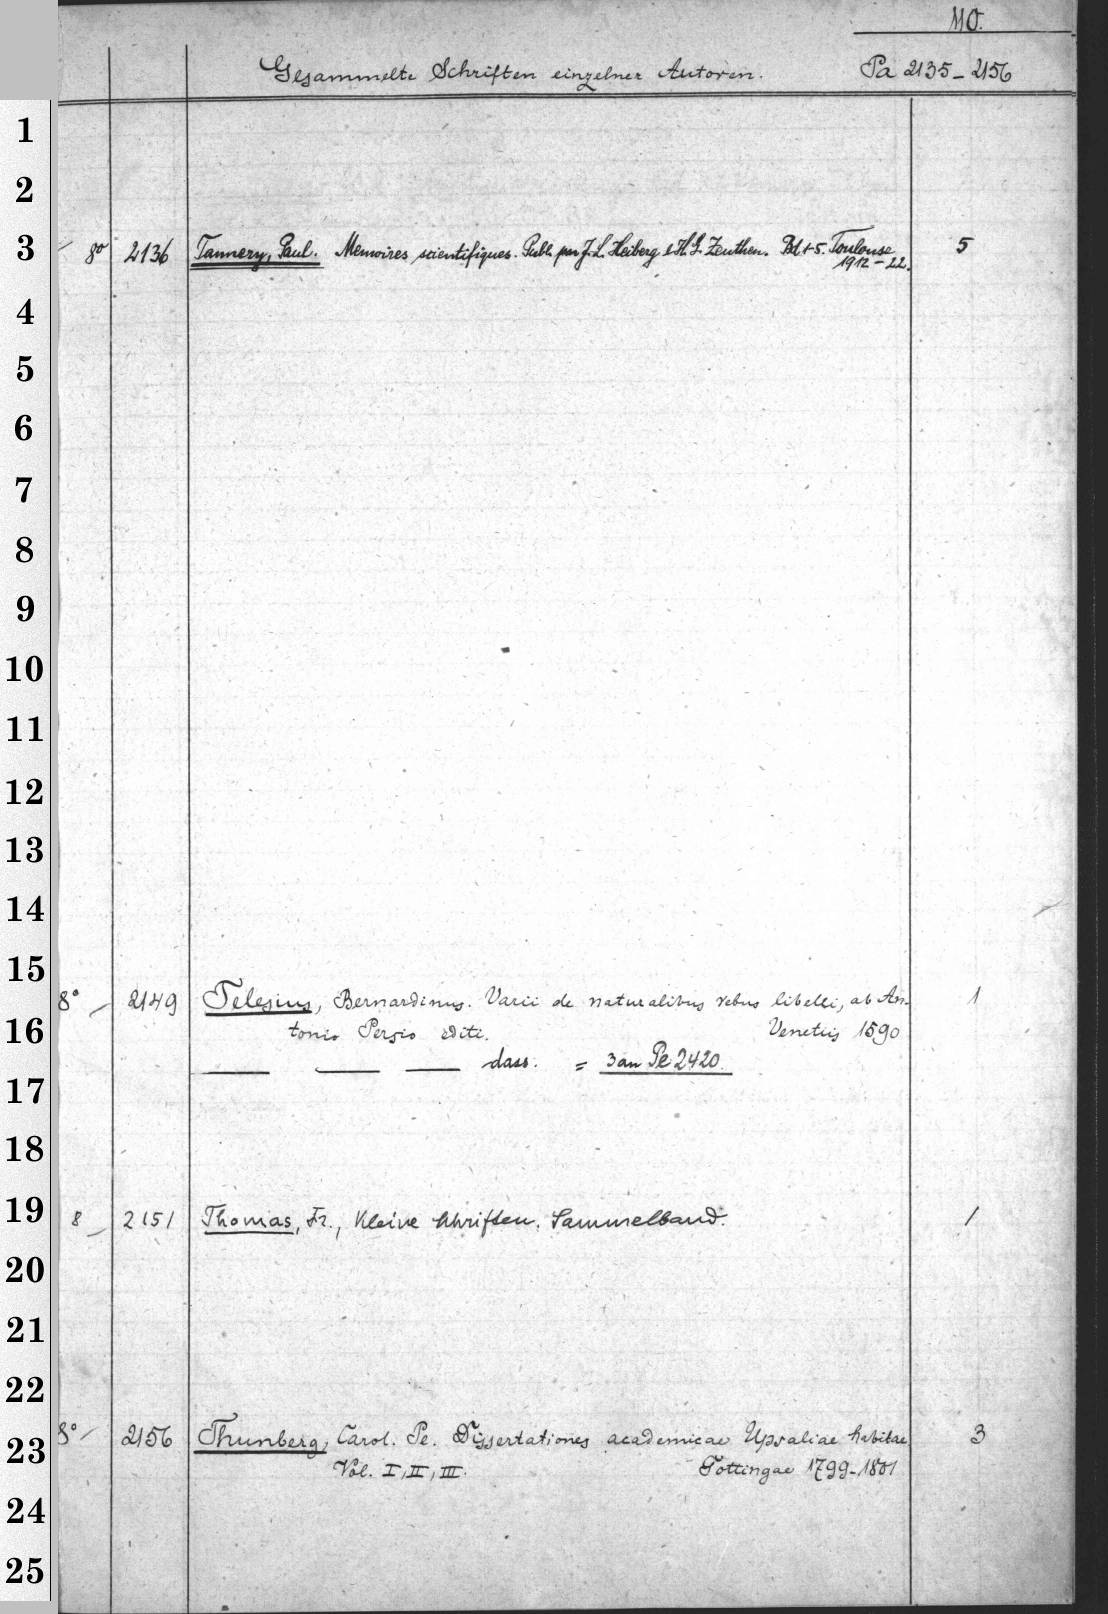 110.
Gesammelte Schriften einzelner Autoren. Pa 2135-2156
1
2
3 8° 2136 Tannery, Paul. Memoires scientifiques. Publ. par J. L. Heiberg & H. G. Zeuthen. Bd. 1-5. Toulouse 5
1912-22.
4
5
6
7
8
9
10
11
12
13
14
15
8° 2149 Telesius, Bernardinus. Varii de naturalibus rebus libelli, ab An- 1
16 tonio Persio editi. Venetiis 1590
dass. = 3 an Pe 2420.
17
18
19 8 2151 Thomas, Fr., Kleine Schriften. Sammelband. 1
20
21
22
23 8° 2156 Thunberg, Carol. Pe. Dissertationes academicae Upsaliae habitae 3
Vol. I, II, III. Gottingae 1799-1801
24
25